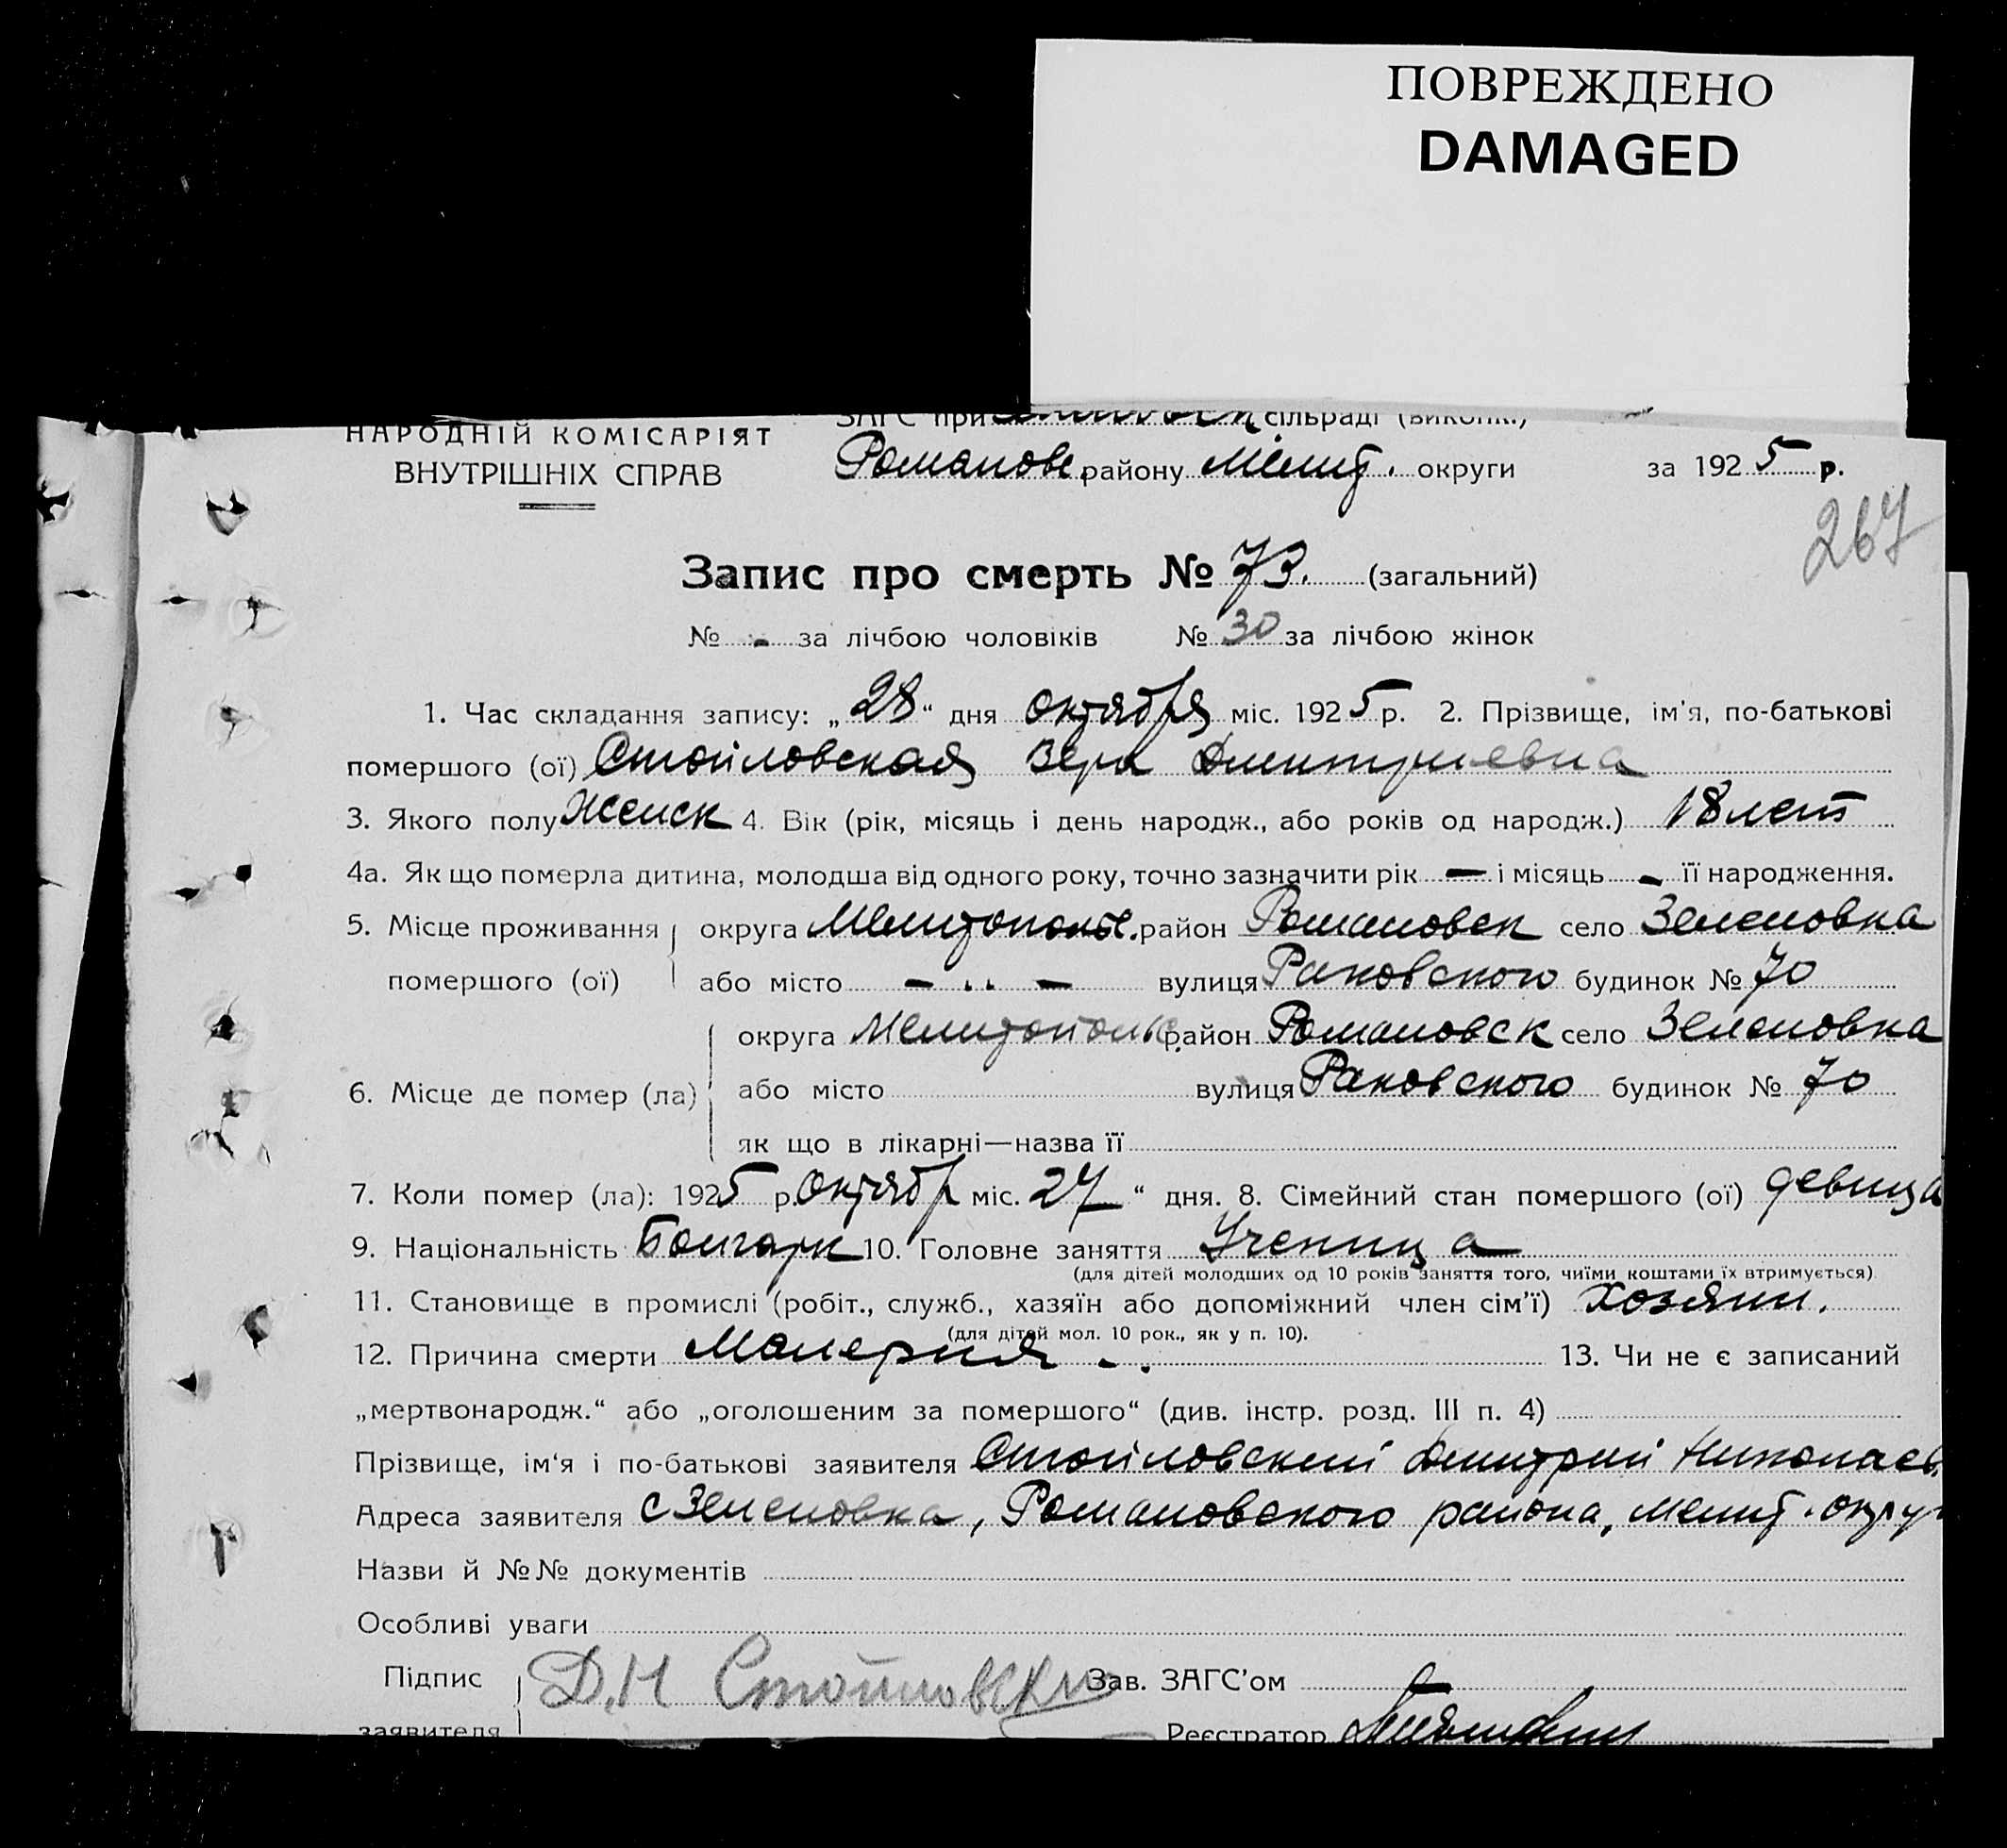 ПОВРЕЖДЕНО
DAMAGED
НАРОДНІЙ КОМІСАРІЯТ
ВНУТРІШНІХ СПРАВ
ЗАГС при сільраді (виконк.)
Романовс. району Меліт. округи за 1925 р.
267
Запис про смерть № 73. (загальний)
№ - за лічбою чоловіків № 30 за лічбою жінок
1. Час складання запису: „28“ дня октября міс. 1925 р. 2. Прізвище, ім'я, по-батькові
помершого (ої) Стойловская Вера Дмитриевна
3. Якого полу Женск 4. Вік (рік, місяць і день народж., або років од народж.) 18 лет
4а. Як що померла дитина, молодша від одного року, точно зазначити рік — і місяць - її народження.
5. Місце проживання округа Мелитопольс. район Романовск село Зеленовка
помершого (ої) або місто — „ — вулиця Раковского будинок № 70
округа Мелитопольс. район Романовск село Зеленовка
6. Місце де помер (ла) або місто вулиця Раковского будинок № 70
як що в лікарні—назва її
7. Коли помер (ла): 1925 р. Октябр міс. 27 “ дня. 8. Сімейний стан помершого (ої) девица
9. Національність Болгарк 10. Головне заняття Ученица
(для дітей молодших од 10 років заняття того, чиїми коштами їх втримується)
11. Становище в промислі (робіт., служб., хазяїн або допоміжний член сім'ї) хозяин.
(для дітей мол. 10 рок., як у п. 10).
12. Причина смерти Малерия - . 13. Чи не є записаний
„мертвонародж.“ або „оголошеним за помершого“ (див. інстр. розд. III п. 4)
Прізвище, ім'я і по-батькові заявителя Стойловский Дмитрий Николаев.
Адреса заявителя с Зеленовка, Романовского района, Мелит. округ
Назви й №№ документів
Особливі уваги
Підпис Д.Н Стойловский Зав. ЗАГС'ом
заявителя Реєстратор